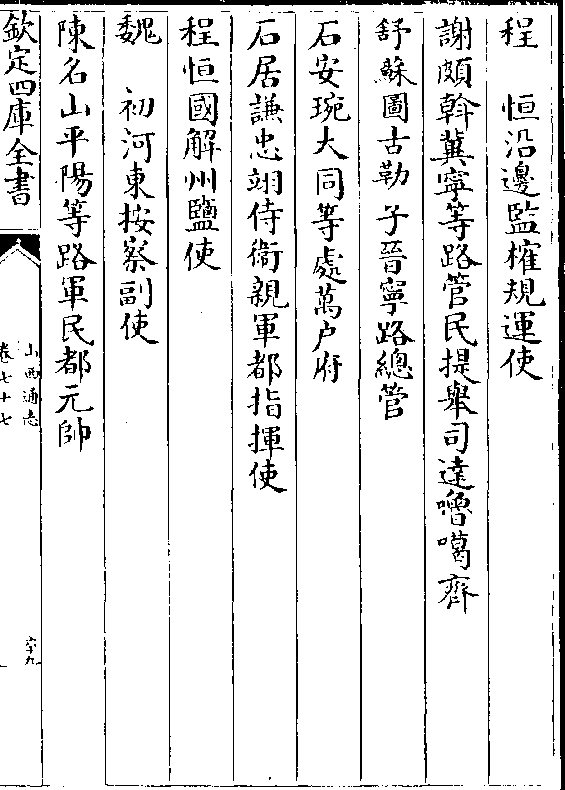 程　恒沿邊監榷規運使
謝頗斡冀寧等路管民提舉司達嚕噶齊
舒蘇圖古勒　子晉寧路總管
石安琬大同等處萬户府
石居謙忠翊侍衛親軍都指揮使
程恒國解州鹽使
魏　初河東按察副使
陳名山平陽等路軍民都元帥
欽定四庫全書
山西通志
卷七十七
六十九